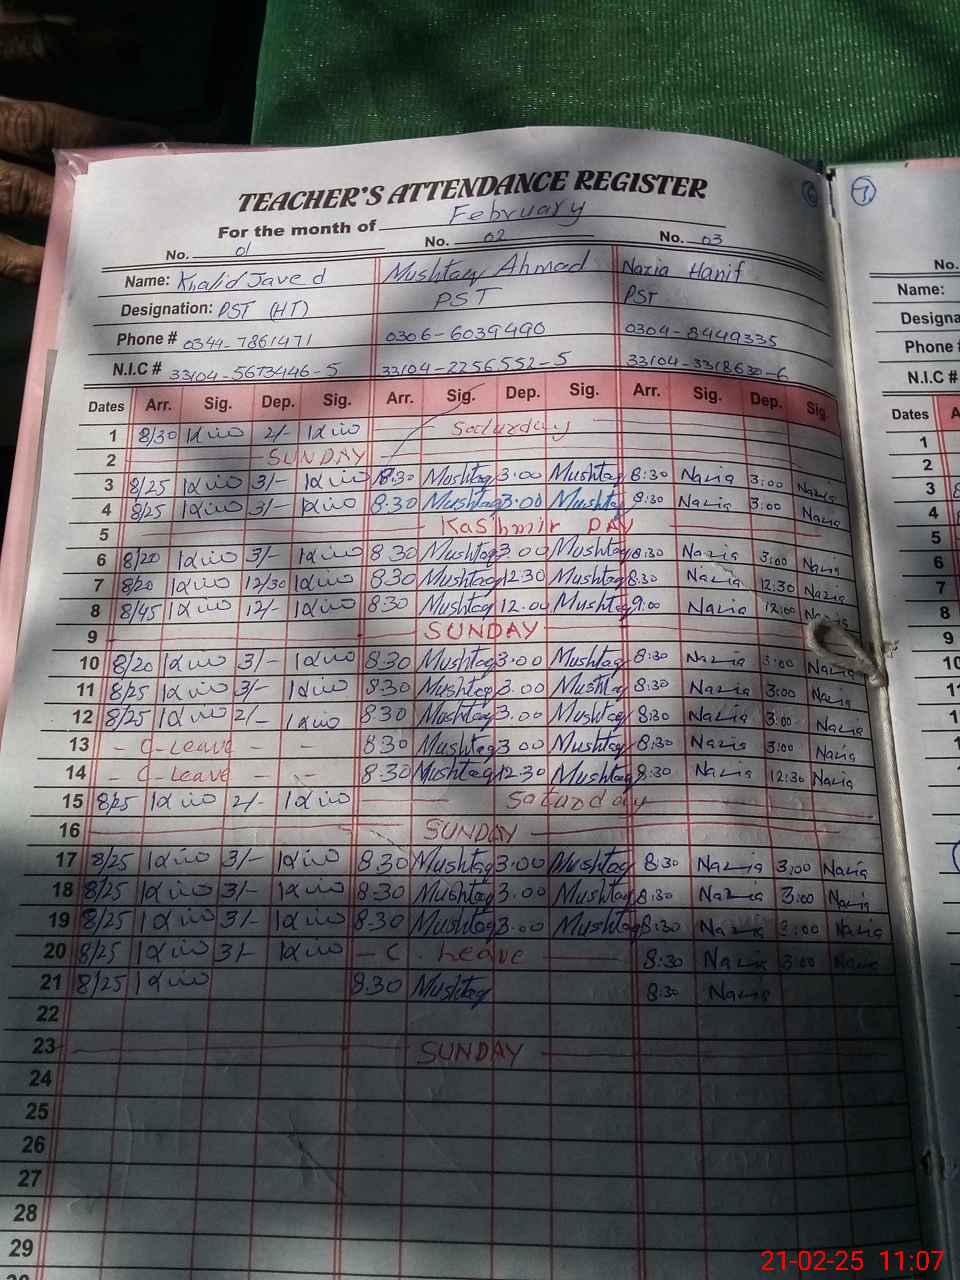 TEACHER'S ATTENDANCE REGISTER
For the month of February
No. 01 No. 02 No. 03
Name: Khalid Javed Mushtaq Ahmad Nazia Hanif
Designation: PST (HT) PST PST
Phone # 0344-7861471 0306-6039490 0304-8449335
N.I.C # 33104-5673446-5 33104-2256552-5 33104-3318630-6
Dates Arr. Sig. Dep. Sig. Arr. Sig. Dep. Sig. Arr. Sig. Dep. Sig.
1 8/30 2/- Saturday
2 SUNDAY
3 8/25 3/- 8:30 Mushtaq 3:00 Mushtaq 8:30 Nazia 3:00 Nazia
4 8/25 3/- 8:30 Mushtaq 3:00 Mushtaq 8:30 Nazia 3:00 Nazia
5 Kashmir DAY
6 8/20 3/- 8.30 Mushtaq 3.00 Mushtaq 8:30 Nazia 3:00 Nazia
7 8/20 12/30 8.30 Mushtaq 12.30 Mushtaq 8:30 Nazia 12:30 Nazia
8 8/45 12/- 8.30 Mushtaq 12.00 Mushtaq 9:00 Nazia 12:00 Nazia
9 SUNDAY
10 8/20 3/- 8.30 Mushtaq 3.00 Mushtaq 8:30 Nazia 3:00 Nazia
11 8/25 3/- 8.30 Mushtaq 3.00 Mushtaq 8:30 Nazia 3:00 Nazia
12 8/25 2/- 8.30 Mushtaq 3.00 Mushtaq 8:30 Nazia 3:00 Nazia
13 - C-Leave - - 8.30 Mushtaq 3.00 Mushtaq 8:30 Nazia 3:00 Nazia
14 - C-Leave - - 8.30 Mushtaq 12.30 Mushtaq 8:30 Nazia 12:30 Nazia
15 8/25 2/- Saturday
16 SUNDAY
17 8/25 3/- 8.30 Mushtaq 3.00 Mushtaq 8:30 Nazia 3:00 Nazia
18 8/25 3/- 8.30 Mushtaq 3.00 Mushtaq 8:30 Nazia 3:00 Nazia
19 8/25 3/- 8.30 Mushtaq 3.00 Mushtaq 8:30 Nazia 3:00 Nazia
20 8/25 3/- - C. Leave 8:30 Nazia 3:00 Nazia
21 8/25 8.30 Mushtaq 8:30 Nazia
22
23 SUNDAY
24
25
26
27
28
29
6
7
No.
Name:
Designa
Phone
N.I.C #
Dates A
1
2
3
4
5
6
7
8
9
10
21-02-25 11:07